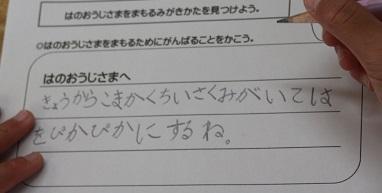 はのおうじさまをまもるみがきかたを見つけよう。
○はのおうじさまをまもるためにがんばることをかこう。
はのおうじさまへ
きょうからこまかくちいさくみがいては
をぴかぴかにするね。